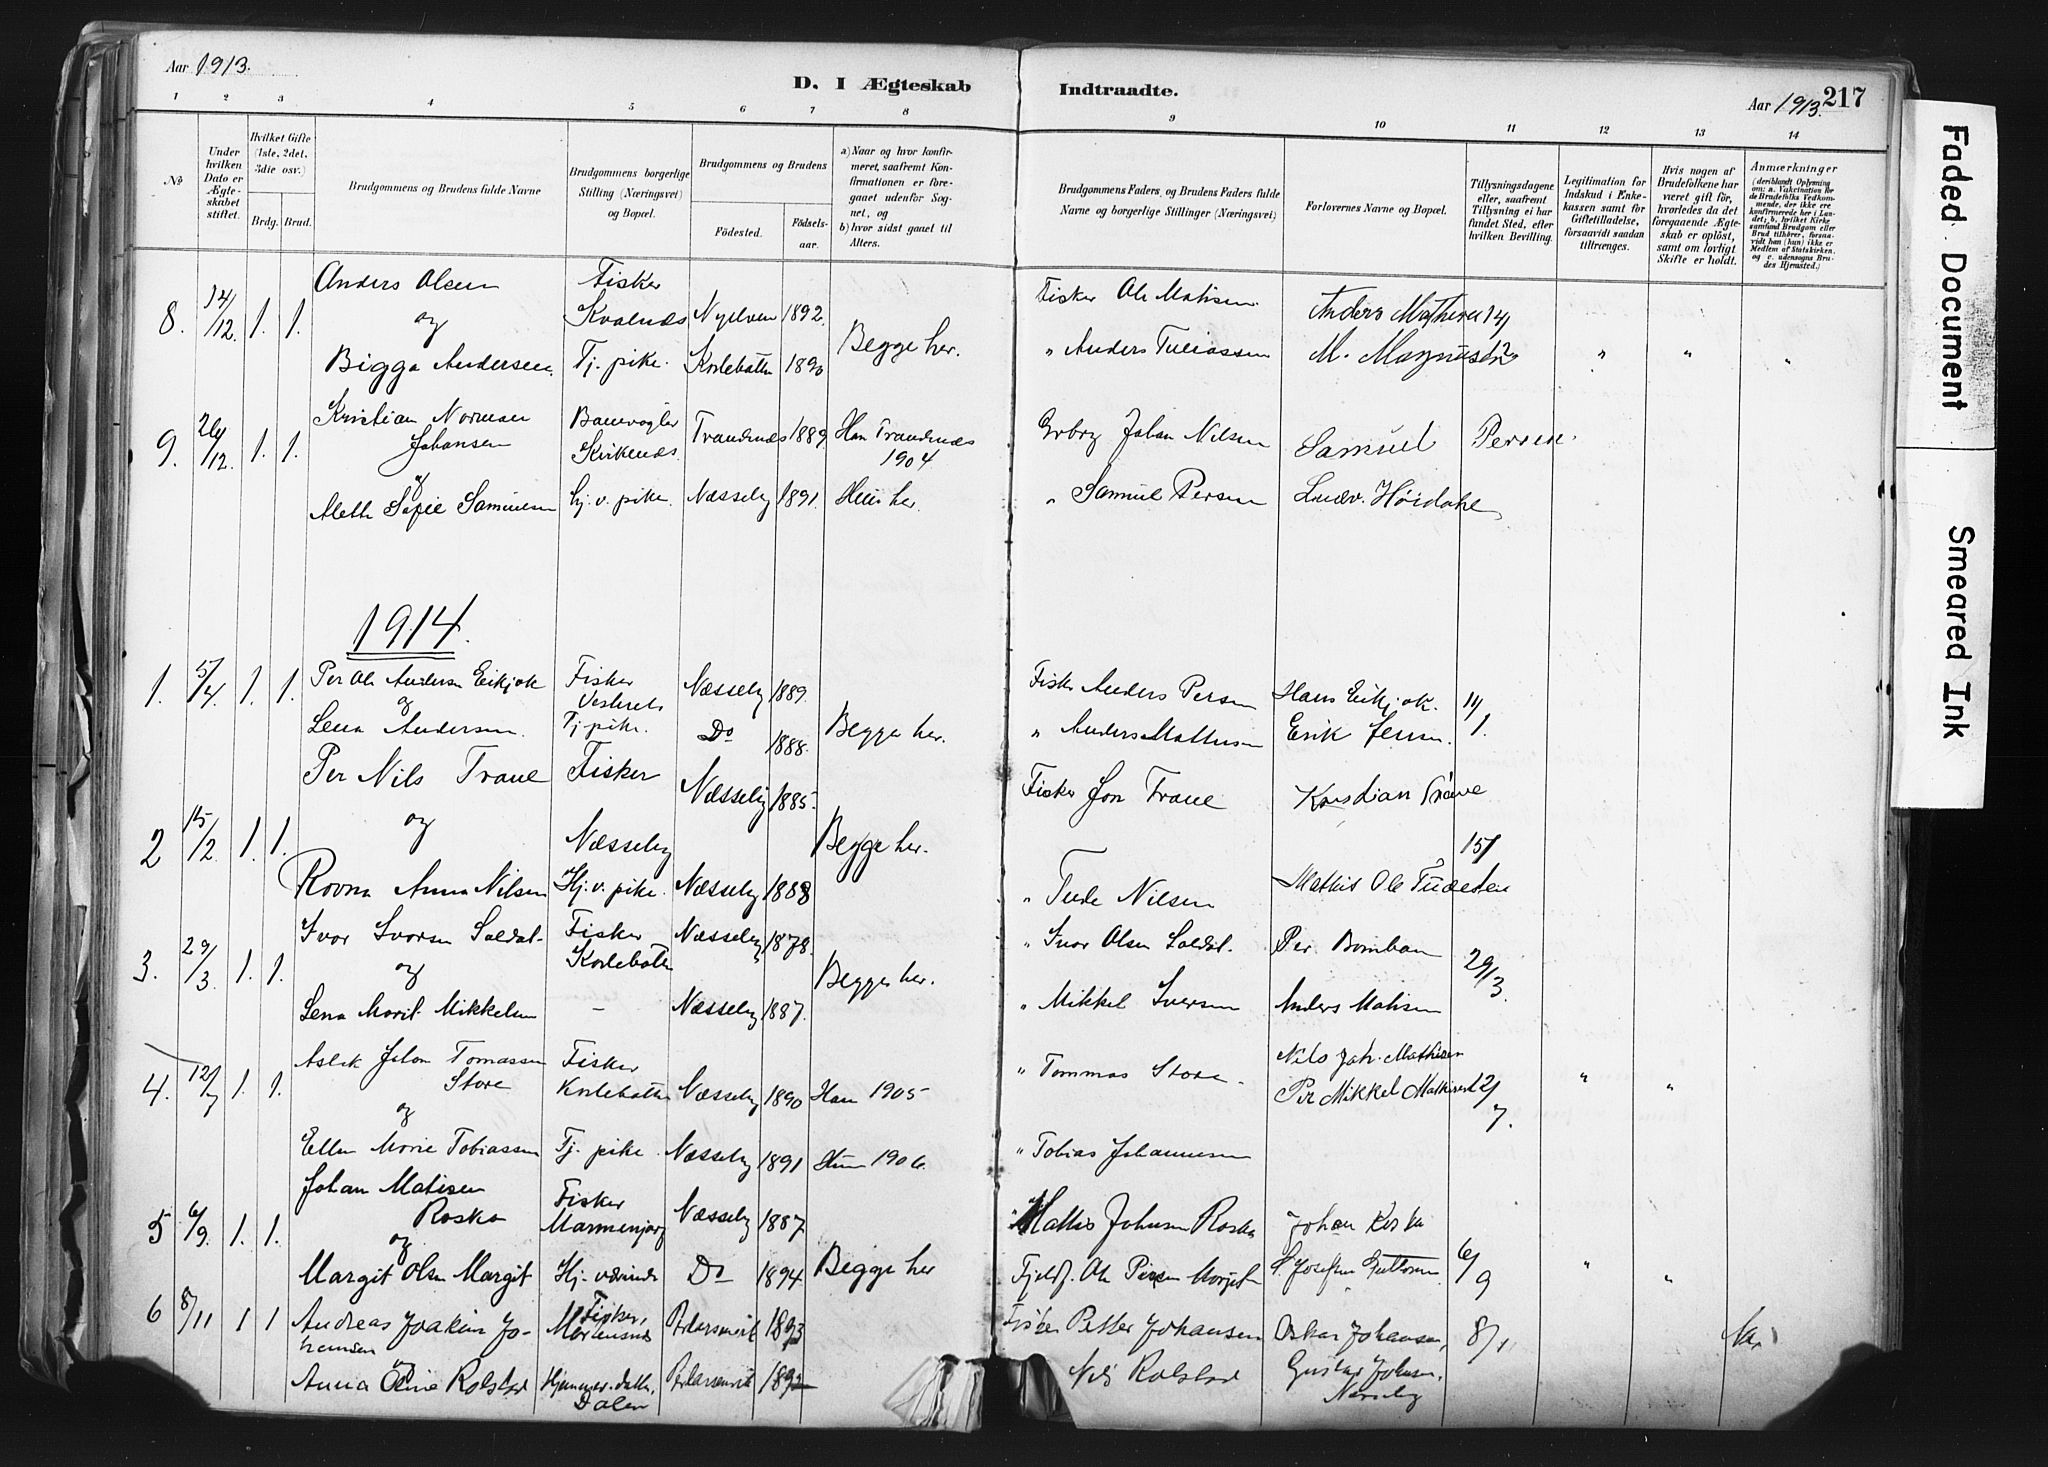 Aar 1913.
D. I Ægteskab
Indtraadte.
Aar 1913.
217
1 2 3 4 5 6 7 8 9 10 11 12 13 14
No
Under hvilken Dato er Ægteskabet stiftet.
Hvilket Gifte (1ste, 2det, 3die osv.)
Brdg. Brud.
Brudgommens og Brudens fulde Navne
Brudgommens borgerlige Stilling (Næringsvei) og Bopæl.
Brudgommens og Brudens
Födested.
Födselsaar.
a) Naar og hvor konfirmeret, saafremt Konfirmationen er foregaaet udenfor Sognet, og
b) hvor sidst gaaet til Alters.
Brudgommens Faders, og Brudens Faders fulde Navne og borgerlige Stillinger (Næringsvei)
Forlovernes Navne og Bopæl.
Tillysningsdagene eller, saafremt Tillysning ei har fundet Sted, efter hvilken Bevilling.
Legitimation for Indskud i Enkekassen samt for Giftetilladelse, forsaavidt saadan tiltrænges.
Hvis nogen af Brudefolkene har været gift för, hvorledes da det foregaaende Ægteskab er oplöst, samt om lovligt Skifte er holdt.
Anmærkninger
(deriblandt Oplysning om: a. Vakcination for de Brudefolks Vedkommende, der ikke ere konfirmerede her i Landet, b. hvilket Kirkesamfund Brudgom eller Brud tilhörer, forsaavidt han (hun) ikke er Medlem af Statskirken, og c. udensogns Brudes Hjemsted.)
8. 14/12. 1. 1.
Anders Olsen Fisker
og Kvalnæs Nyelven 1892.
Bigga Andersen. Tj. pike. Korlebotn 1890
Begge her.
Fisker Ole Matisen. Anders Mathisen 14/12
" Anders Tuliassen M. Magnusen " " "
9. 26/12. 1. 1.
Kristian Norman Johansen Banevogter Kirkenæs. Trandenæs 1889. Han Trandenæs 1904
og
Aleth Sofie Samuelsen hj. v. pike. Næsseby 1891. Hun her.
Grbrg Johan Nilsen Samuel Persen.
" Samuel Persen Ludv. Høidahl
1914.
1. 5/4. 1. 1.
Per Ole Andersen Eikjok Fisker Vesterelv Næsseby 1889.
og
Lena Andersen. Tj pike. Do 1888.
Begge her.
Fisker Anders Persen Hans Eikjok. 11/1.
" Anders Mathisen Erik Jensen.
2 15/2. 1. 1.
Per Nils Trane Fisker Næsseby 1885.
og Næsseby
Rovna Anna Nilsen Hj. v. pike. Næsseby 1888
Begge her.
Fisker Jon Trane Kristian Trane
" Tude Nilsen Mathis Ole 15/
3. 29/3. 1. 1.
Ivar Ivarsen Saldat. Fisker Næsseby 1878.
og Korlebotn
Lena Marit Mikkelsen - Næsseby 1887.
Begge her.
" Ivar Olsen Saldat. Per Bomban 29/3.
" Mikkel Iversen Anders Matisen
4. 12/7 1. 1.
Aslak Johan Tomassen Store Fisker Korlebotn Næsseby 1890 Han 1905
og
Ellen Marie Tobiassen Tj. pike. Næsseby 1891 Hun 1906.
" Tommas Store. Nils Joh. Mathisen
Per Mikkel Mathisen 12/7. " "
" Tobias Johannesen
5 6/9. 1. 1.
Johan Matisen Roska Fisker Marmenjarg Næsseby 1887
og
Margit Olsen Margit Hj. værende Do 1894.
Begge her
Mattis Johnsen Roska Johan Roska
Fjeldf. Ole Persen 6/9 " "
6 8/11 1 1
Andreas Joakim Johansen Fisker, Mortensnes 1893
og
Anna Oline Rolstad Hjemmev. datter, Dalen 1892
Fisker Petter Johansen Oskar Johansen, 8/11
Nils Rolstad Gustav Johnsen, Næsseby
Faded Document
Smeared Ink